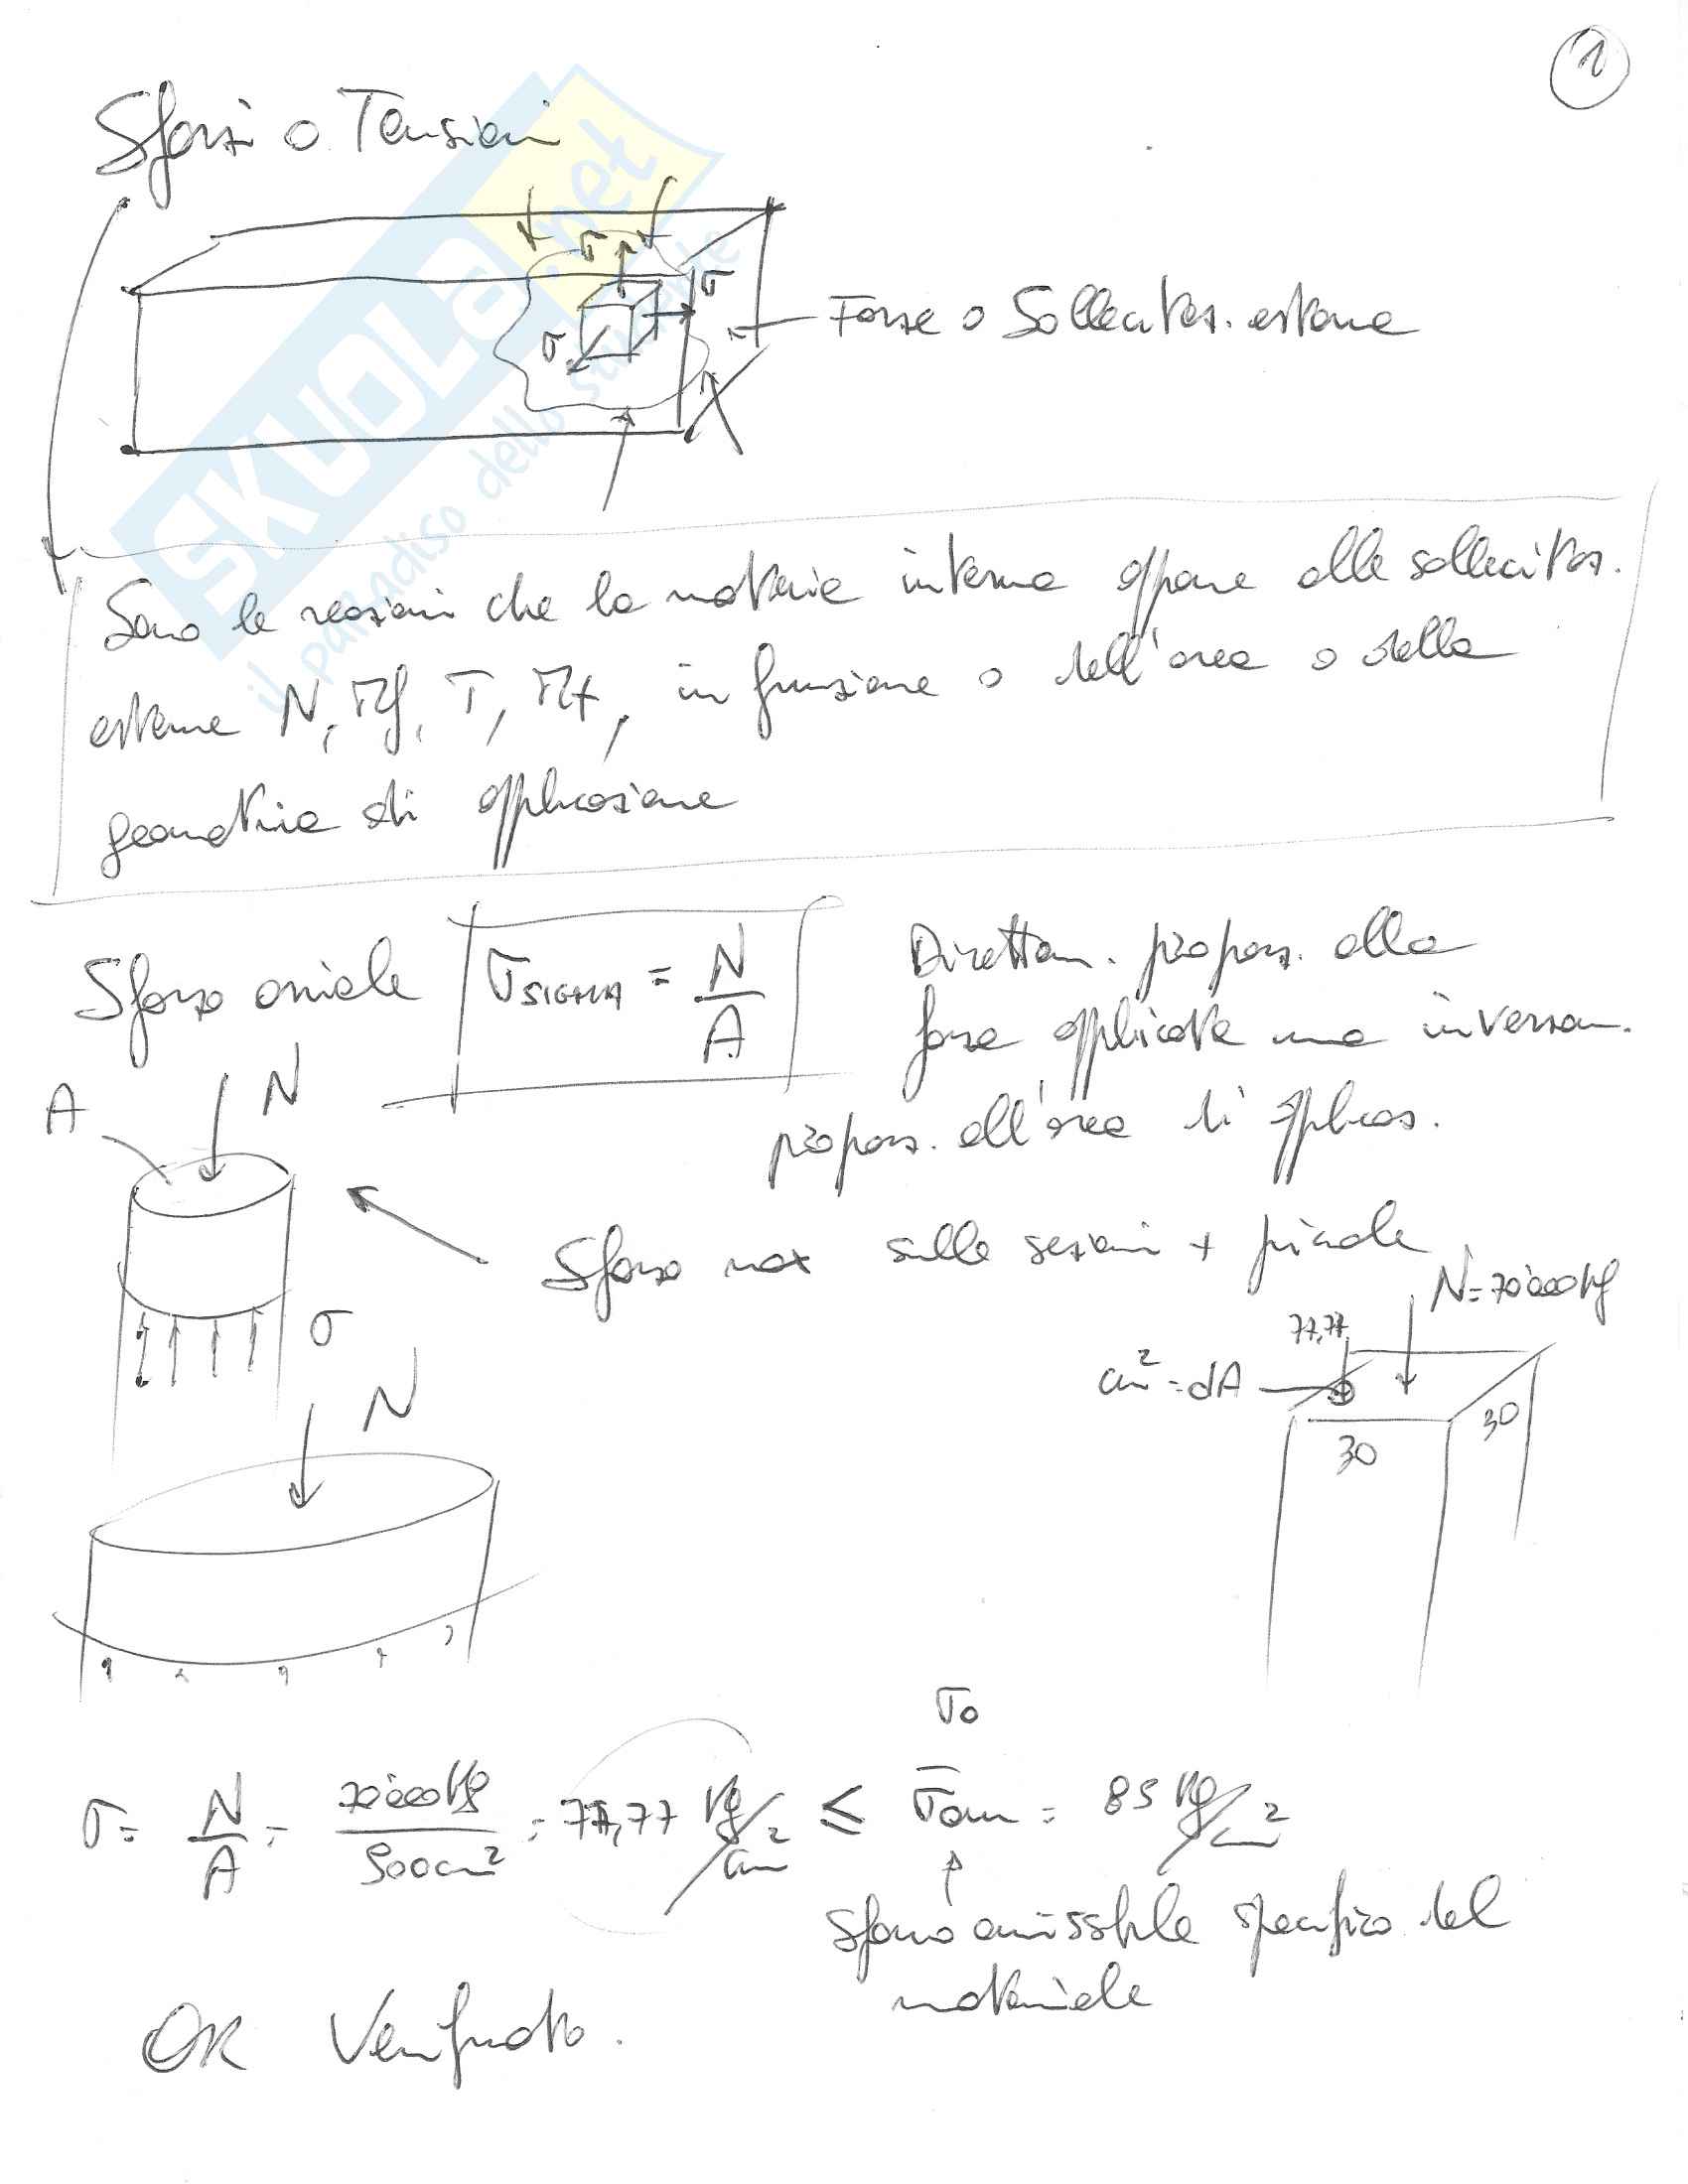 1
Sforzi o Tensioni
σ
σ
σ
Forze o Sollecitaz. esterne
Sono le reazioni che la materia interna oppone alle sollecitaz.
esterne N, Mf, T, Mt, in funzione o dell'area o della
geometria di applicazione
Sforzo assiale σ SIGMA = N/A
Direttam. proporz. alla
forza applicata ma inversam.
proporz. all'area di applicaz.
A
N
Sforzo max sulle sezioni + piccole
σ
N
N = 70'000 Kg
77,77
cm² = dA
30
30
σ0
σ = N/A = 70'000 Kg/900 cm² = 77,77 Kg/cm² ≤ σ̄am = 85 Kg/cm²
Sforzo amissibile specifico del
materiale
OK Verificato.
SKUOLa.net
il paradiso dello studente